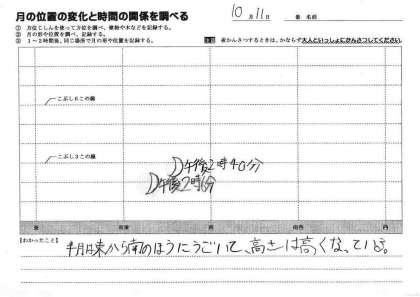 月の位置の変化と時間の関係を調べる
10月11日
番 名前
① 方位じしんを使って方位を調べ、建物や木などを記録する。
② 月の形や位置を調べ、記録する。
③ 1〜2時間後、同じ場所で月の形や位置を記録する。
注意 夜かんさつするときは、かならず大人といっしょにかんさつしてください。
こぶし6この線
こぶし3この線
午後2時40分
午後2時
東
南東
南
南西
西
【わかったこと】
半月は東から南のほうにうごいて、高さは高くなっている。